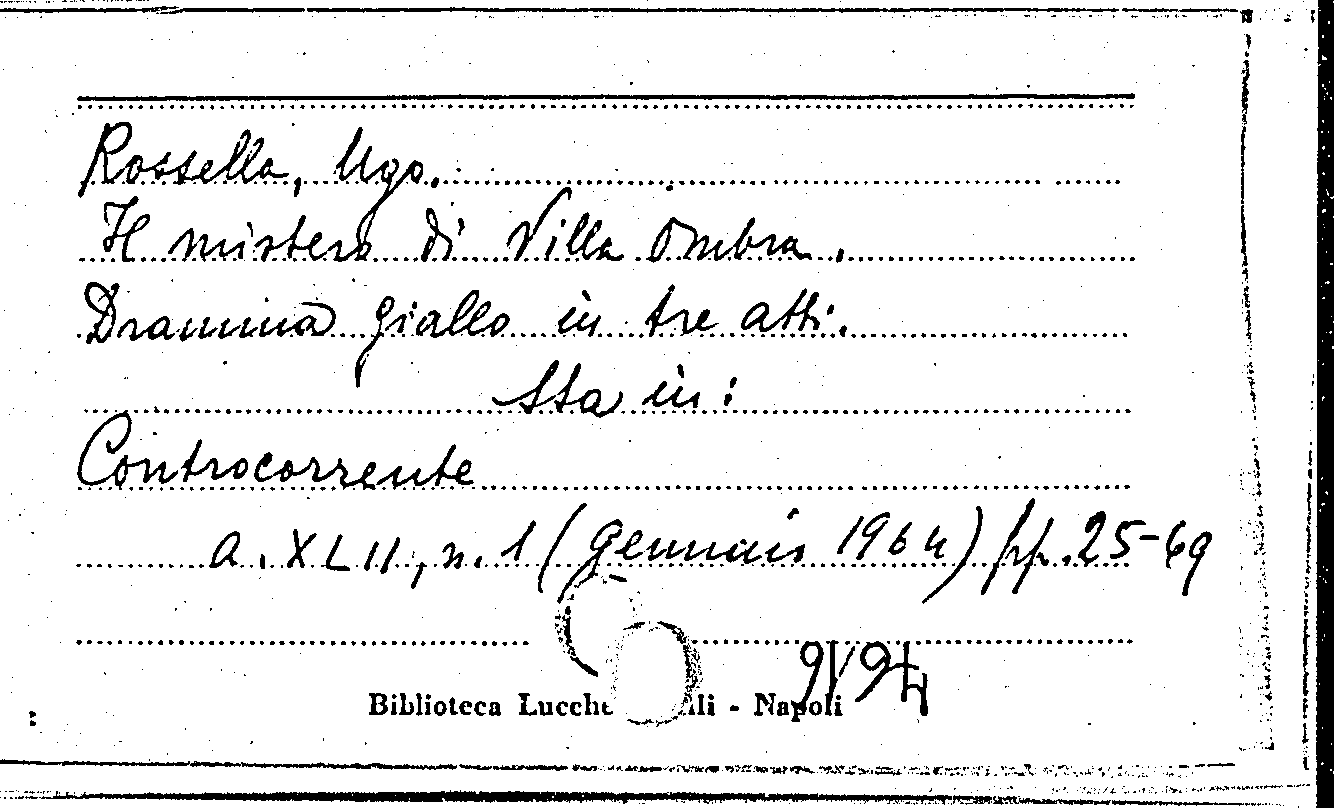 Rossella, Ugo.
Il mistero di Villa Ombra.
Dramma giallo in tre atti.
Sta in:
Controcorrente
a. XLII, n. 1 (Gennaio 1964) pp. 25-69
Biblioteca - Napoli